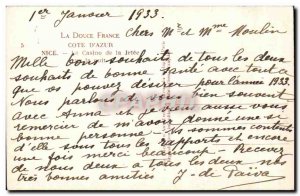 1er Janvier 1933.
LA DOUCE FRANCE
COTE D'AZUR
5
NICE. — Le Casino de la Jetée
Chers Mr et Mme Moulin
Mille bons souhaits de tous les deux
souhaits de bonne santé avec tout ce
que vous pouvez désirer pour l'année 1933.
Nous parlons de vous bien souvent
avec Anna et je viens aussi vous
remercier de m'avoir donné une si
bonne personne. Nous sommes contents
d'elle sous tous les rapports et encore
une fois merci beaucoup. Recevez
de nous deux à tous les deux nos
très bonnes amitiés J. de Paiva